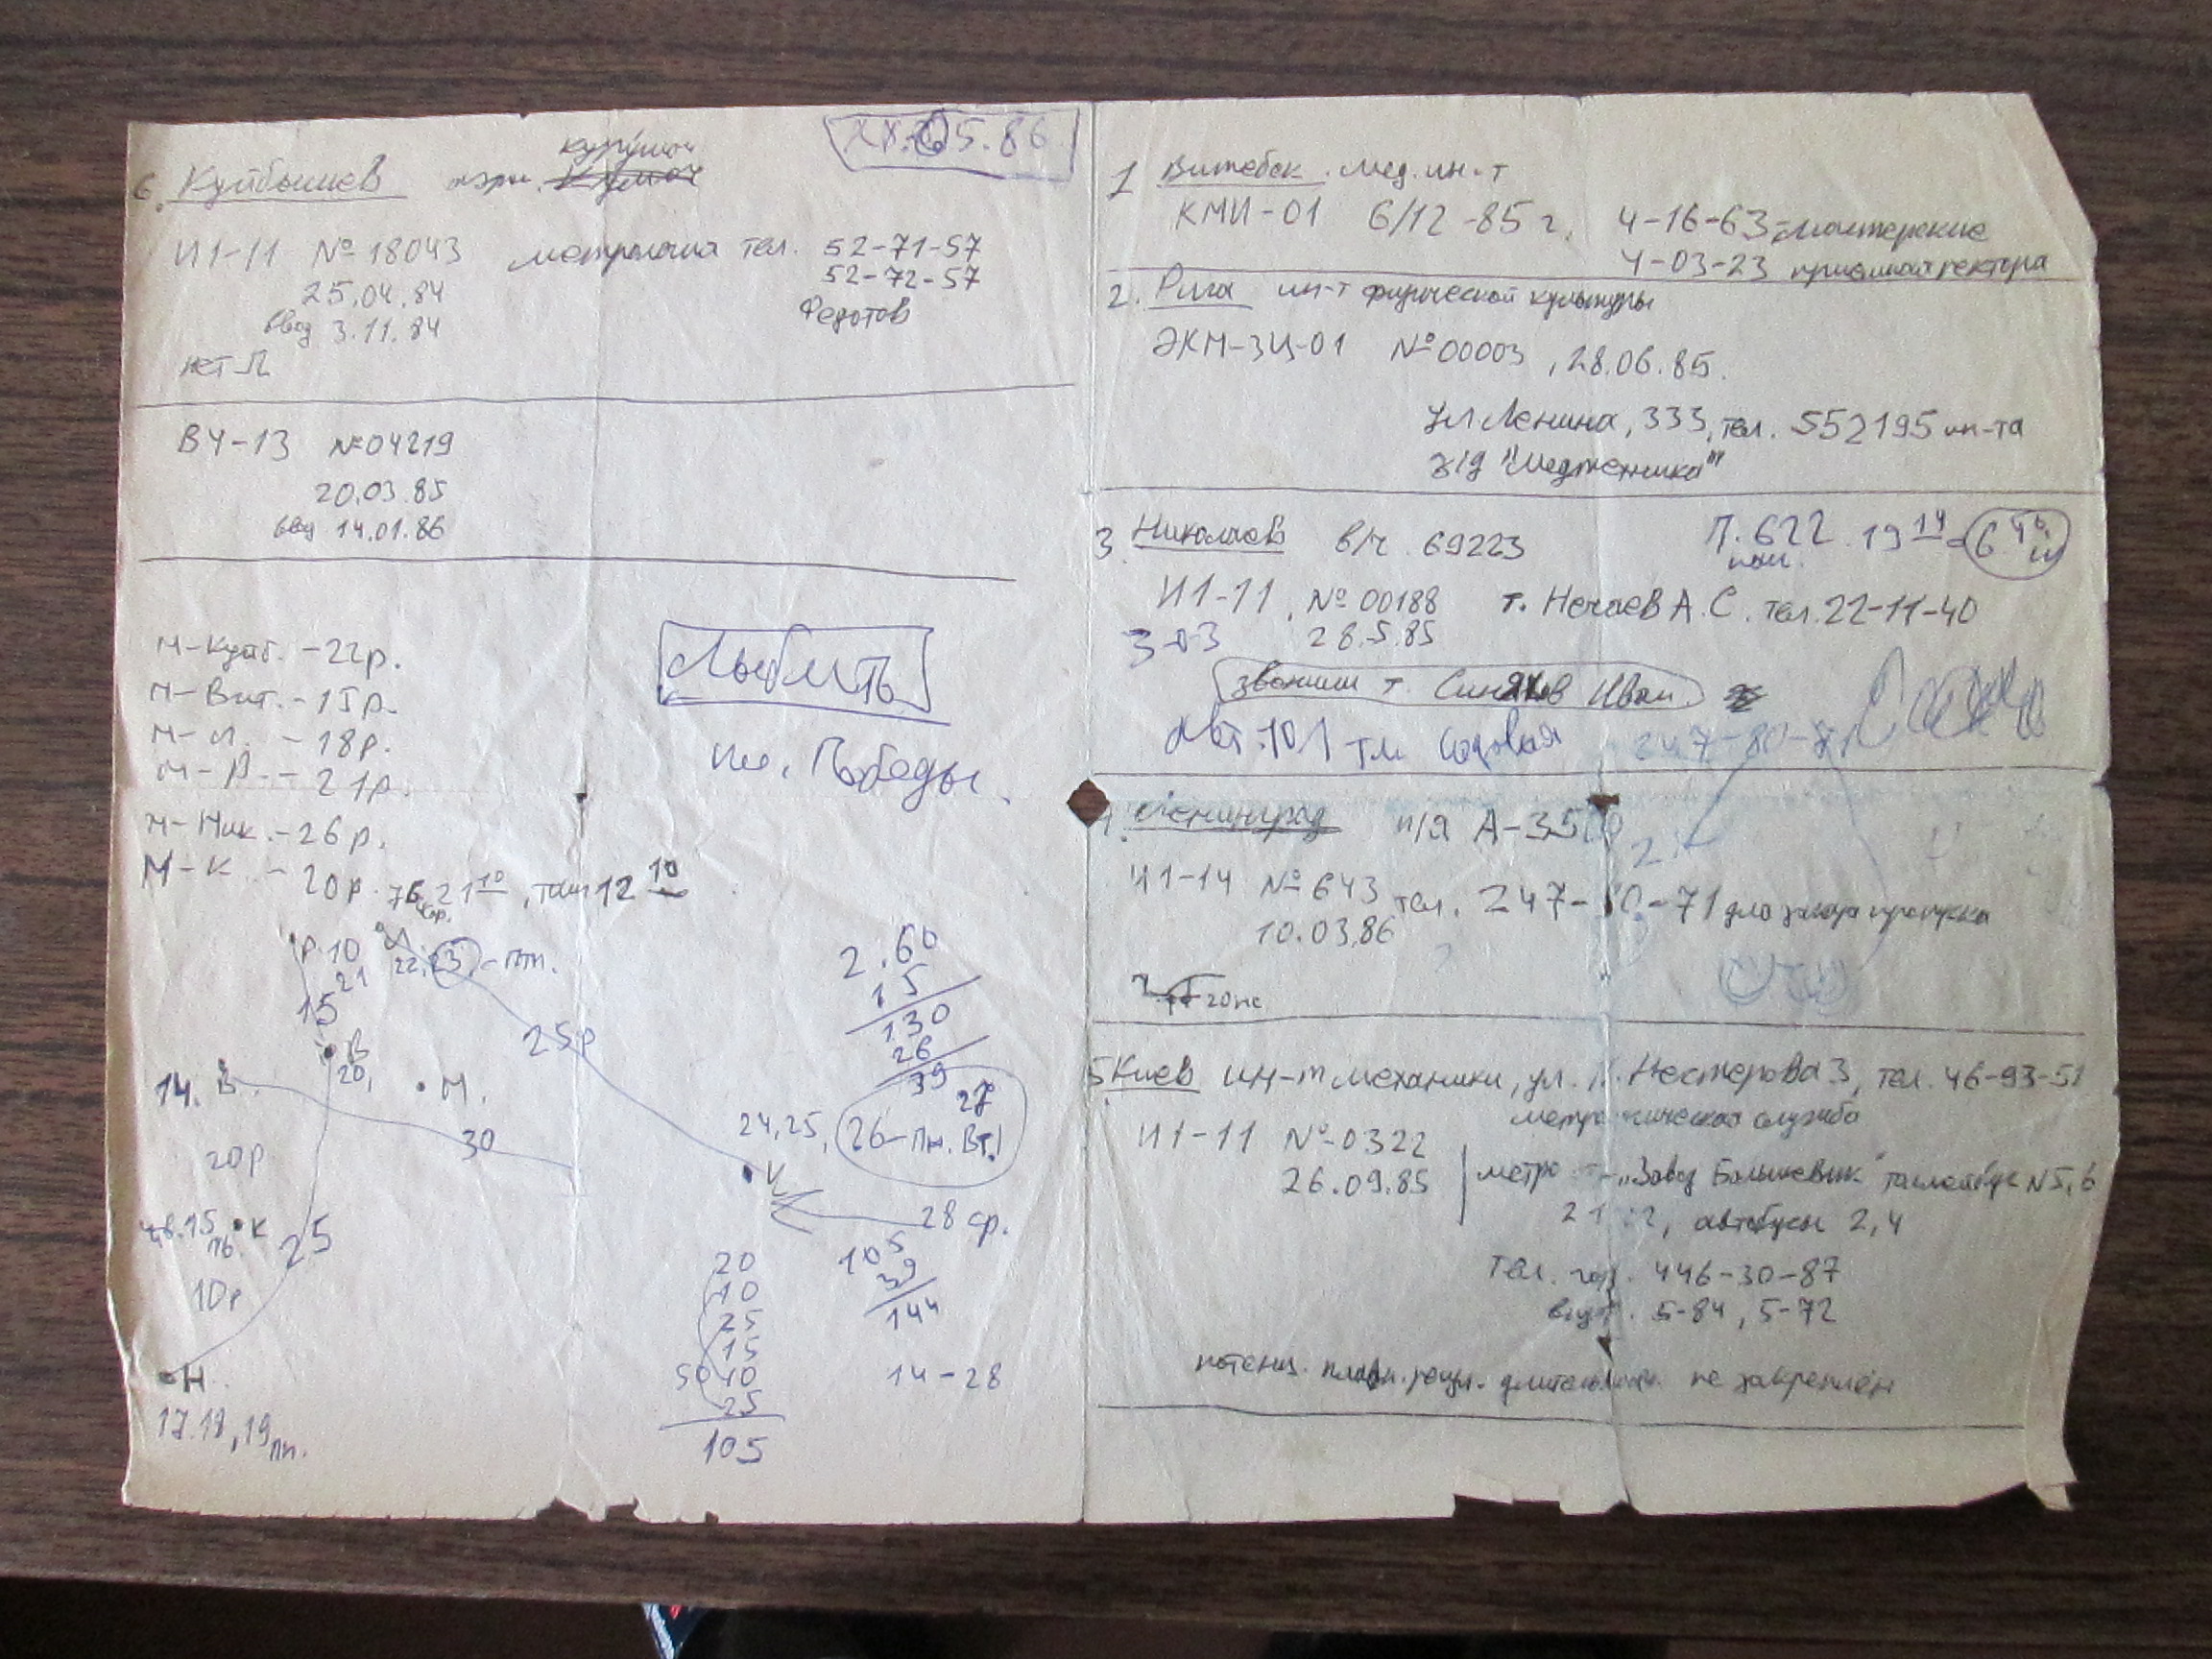 XX.05.86
6. Куйбышев аэроп. Курумоч
И1-11 №18043 метрология тел. 52-71-57
25.04.84 52-72-57
ввод 3.11.84 Федотов
нет Л
ВЧ-13 №04219
20.03.85
ввод 14.01.86
М-Куйб. -22р.
М-Вит. -15р.
М-Л. -18р.
М-Р. -21р.
М-Ник. -26р.
М-К. -20р.
21 10, 12 10
ЛЮБИТЬ
пл. Победы.
Р. 10
21
22, 23, -птн.
15
В
20,
14. В.
М.
25р
30
20р
15 К
25
10р
Н
17.18, 19 пн.
2.60
15
130
26
39
27
24,25, 26-Пн. Вт!
28 ср.
105
39
144
14-28
20
10
25
15
50 40
25
105
1 Витебск. Мед. ин-т
КМИ-01 6/12-85г. 4-16-63-мастерские
4-03-23 приёмная ректора
2. Рига ин-т физической культуры
ЭКМ-3Ц-01 №00003, 28.06.85.
ул Ленина, 333, тел. 552195 ин-та
з/д "Медтехника"
3 Николаев в/ч 69223 П. 622 19 14
И1-11, №00188 т. Нечаев А.С. тел. 22-11-40
28.5.85
звонили т. Синяков Иван.
Авт. 101 Садовая 247-80-71
4. Ленинград п/я А-35
И1-14 №643 тел. 247- 0-71 для заказа пропуска
10.03.86
5 Киев ин-т механики, ул. П. Нестерова 3, тел. 46-93-51
метрологическая служба
И1-11 №0322
26.09.85 метро "Завод Большевик" троллейбус №5,6
21, автобусы 2,4
тел. гор. 446-30-87
внут. 5-84, 5-72
потенц. плавн. регул. длительн. не закреплён